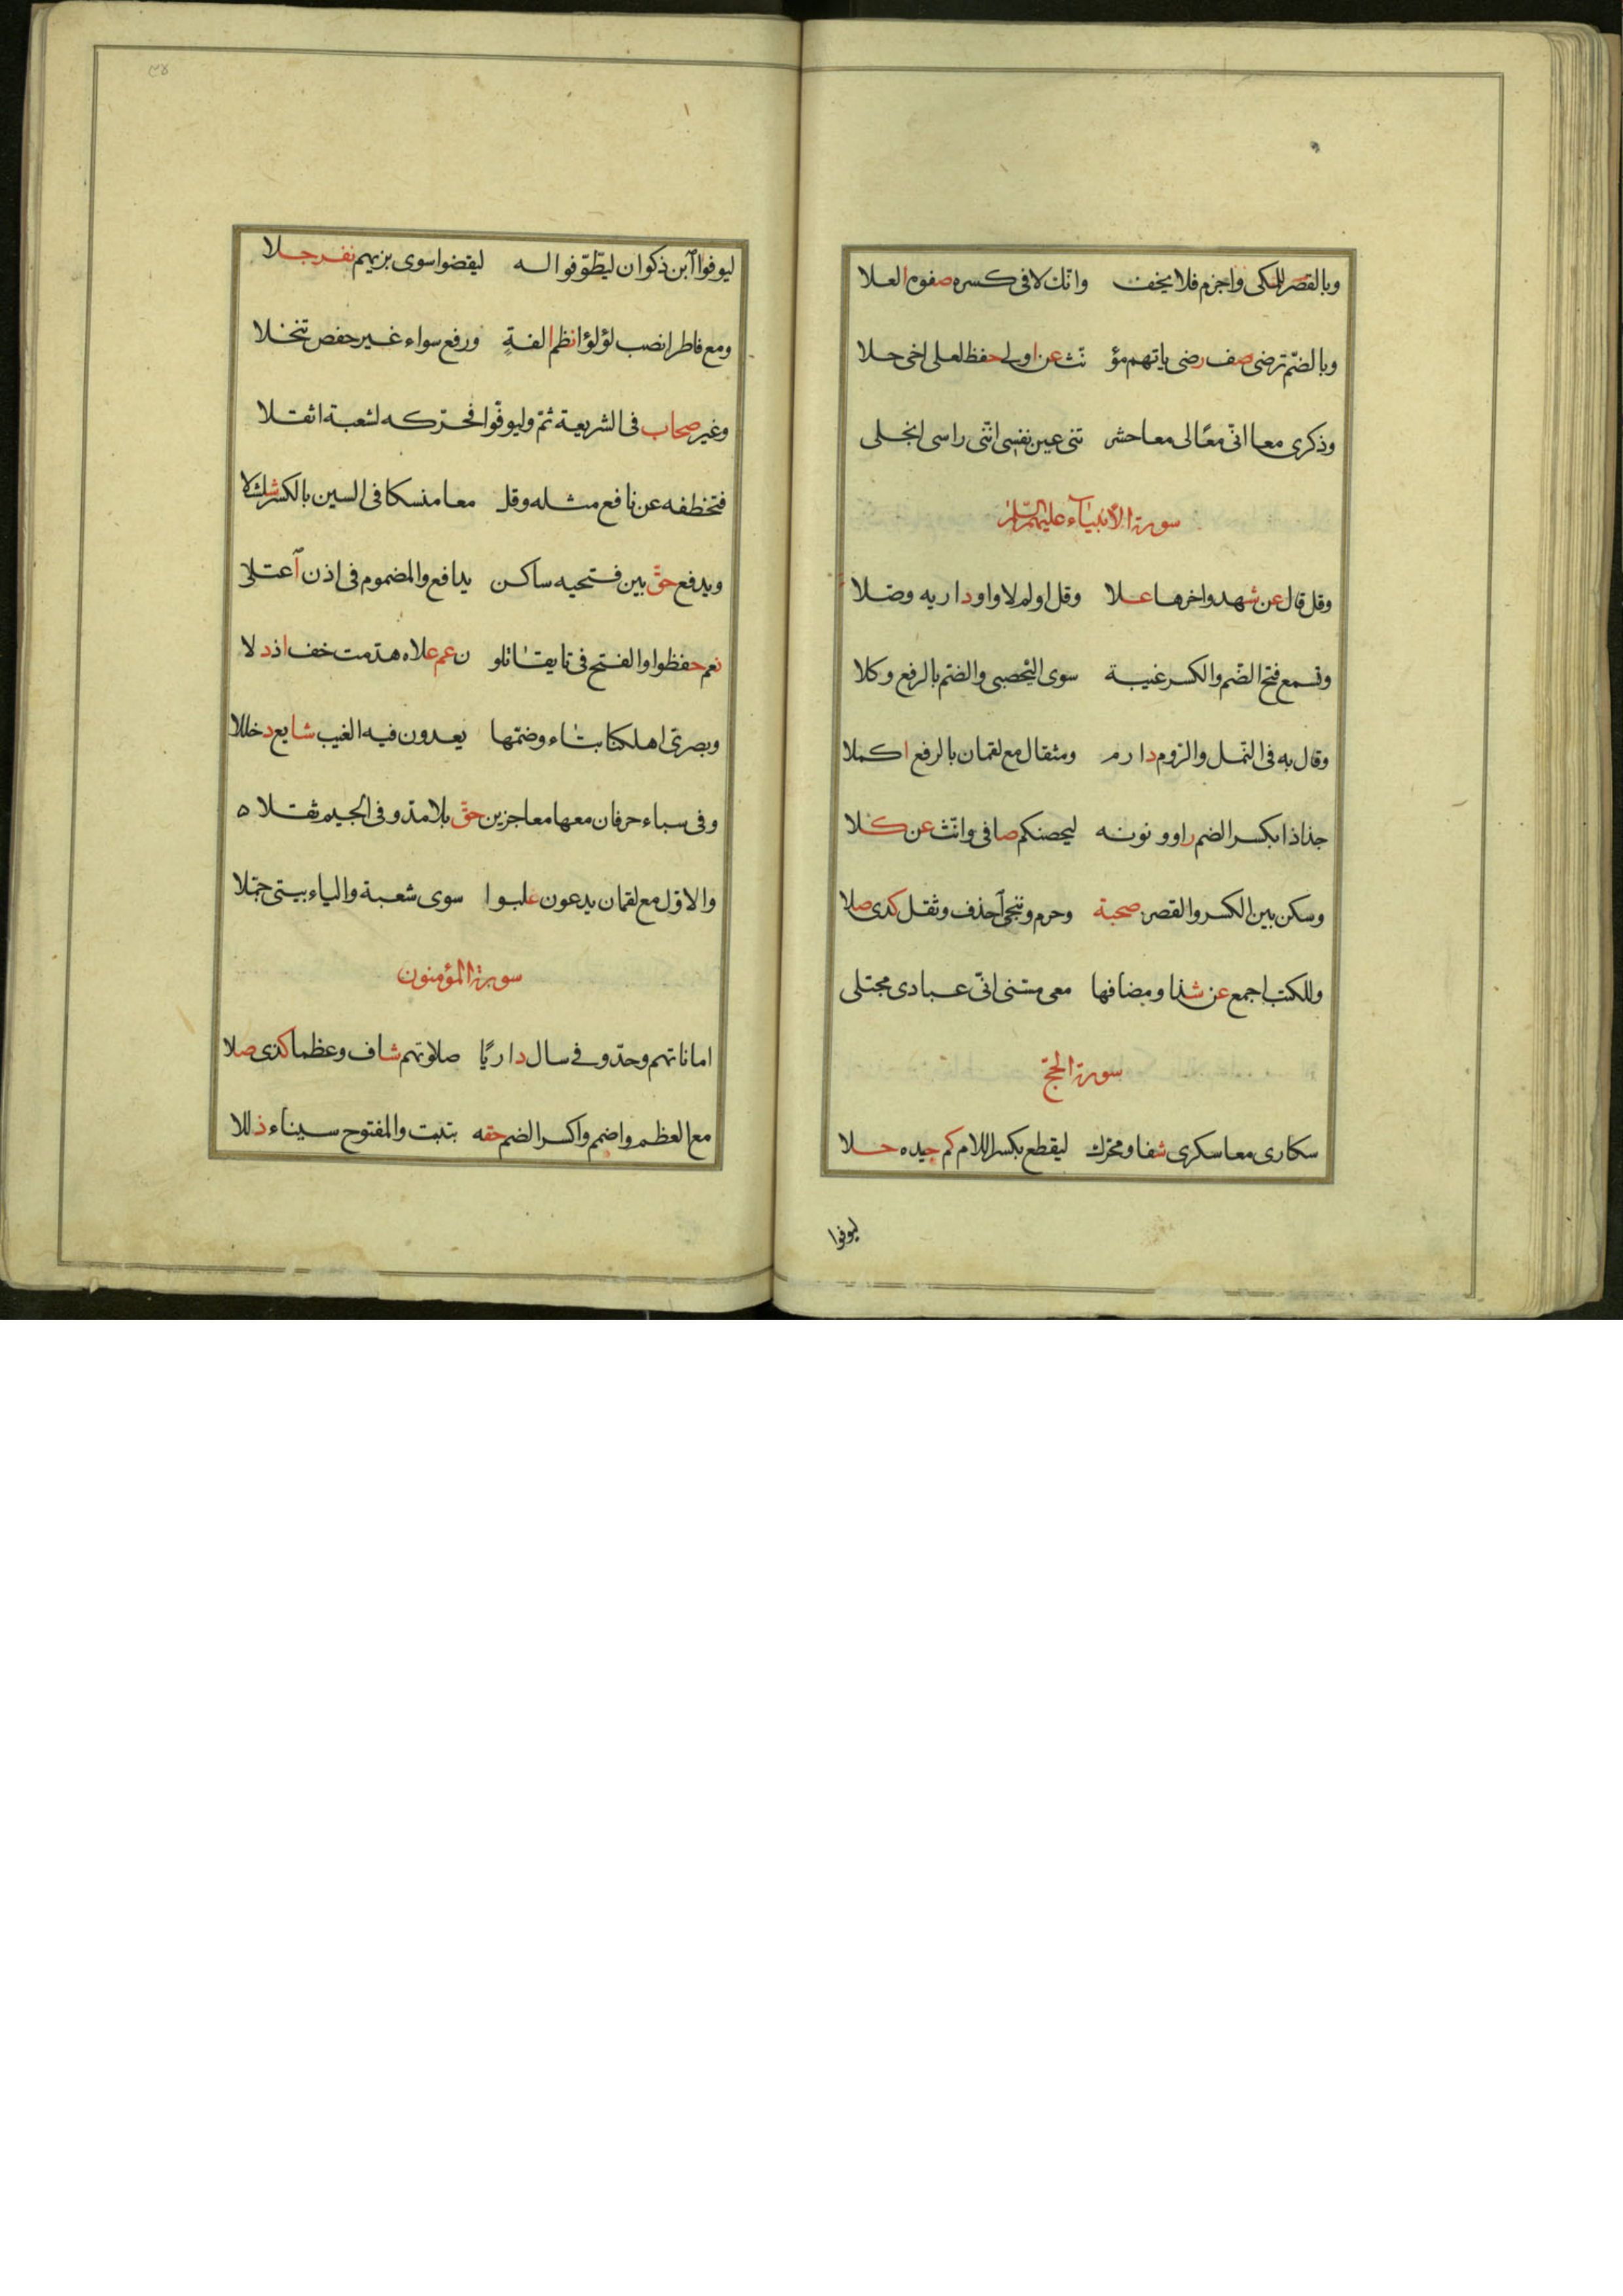 وبالقصر للمكى واجزم فلا يخف وانك لا فى كسره صفوه العلا
وبالضّم ترضى صف رضى ياتهم مؤ نّث عن اولى حفظ لعلى اخى حلا
وذكرى معا انّى معًا لى معا حشر تنى عين نفسى انّنى راسى انجلى
سورة الأنبياء عليهم السلام
وقل قال عن شهد واخرها علا وقل اولم لا واو داريه وصلا
وتسمع فتح الضّم والكسر غيبة سوى اليحصبى والضم بالرفع وكلا
وقال به فى النمل والروم دارم ومثقال مع لقمان بالرفع اكملا
جذاذا بكسر الضم راو ونونه ليحصنكم صافى وانّث عن كلا
وسكن بين الكسر والقصر صحبة وحرم وننجى احذف وثقل كذى صلا
وللكتب اجمع عن شذا ومضافها معى مسّنى انّى عبادى مجتلى
سورة الحجّ
سكارى معا سكرى شفا ومحرّك ليقطع بكسر اللام كم جيده حلا
ليوفوا
٣٤
ليوفوا ابن ذكوان ليطّوّفوا له ليقضوا سوى بزيهم نفر جلا
ومع فاطر انصب لؤلؤا نظم الفةٍ ورفع سواء غير حفص تنخلا
وغير صحاب فى الشريعة ثمّ وليوفّوا فحرّكه لشعبة اثقلا
فتخطفه عن نافع مثله وقل معا منسكا فى السين بالكسر شلشلا
ويدفع حقّ بين فتحيه ساكن يدافع والمضموم فى اذن اعتلى
نعم حفظوا والفتح فى تا يقاتلو ن عم علاه هدّمت خف اذ دلا
وبصرىّ اهلكنا بتاء وضمّها يعدون فيه الغيب شايع دخللا
وفى سباء حرفان معها معاجزين حقّ بلا مدّ وفى الجيم ثقلا ه
والاوّل مع لقمان يدعون غلبوا سوى شعبة والياء بيتى جمّلا
سورة المؤمنون
اماناتهم وحّد وفى سال داريًا صلوتهم شاف وعظما كذى صلا
مع العظم واضمم واكسر الضم حقه بتنبت والمفتوح سيناء ذللا